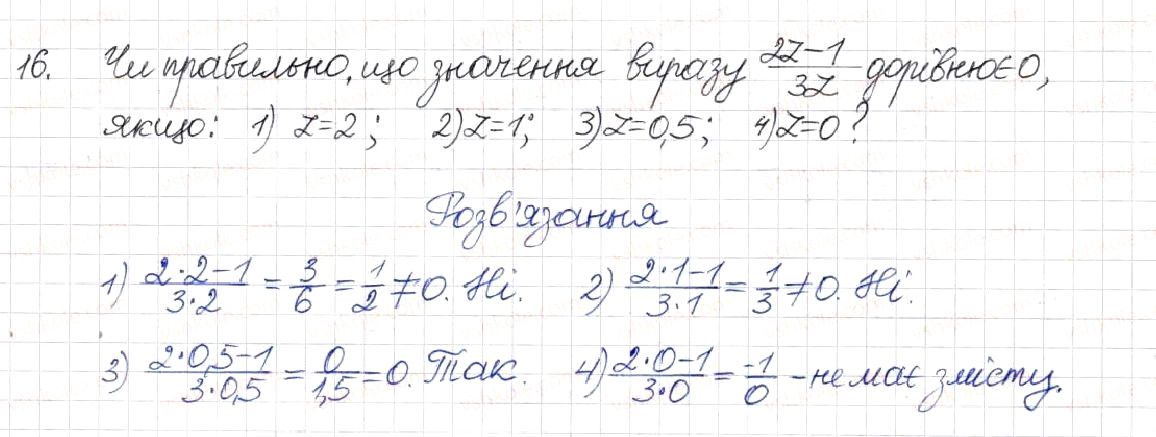 16. Чи правильно, що значення виразу (2z-1)/(3z) дорівнює 0,
якщо: 1) z=2; 2) z=1; 3) z=0,5; 4) z=0?
Розв'язання
1) (2·2-1)/(3·2) = 3/6 = 1/2 ≠ 0. Ні. 2) (2·1-1)/(3·1) = 1/3 ≠ 0. Ні.
3) (2·0,5-1)/(3·0,5) = 0/1,5 = 0. Так. 4) (2·0-1)/(3·0) = -1/0 - не має змісту.